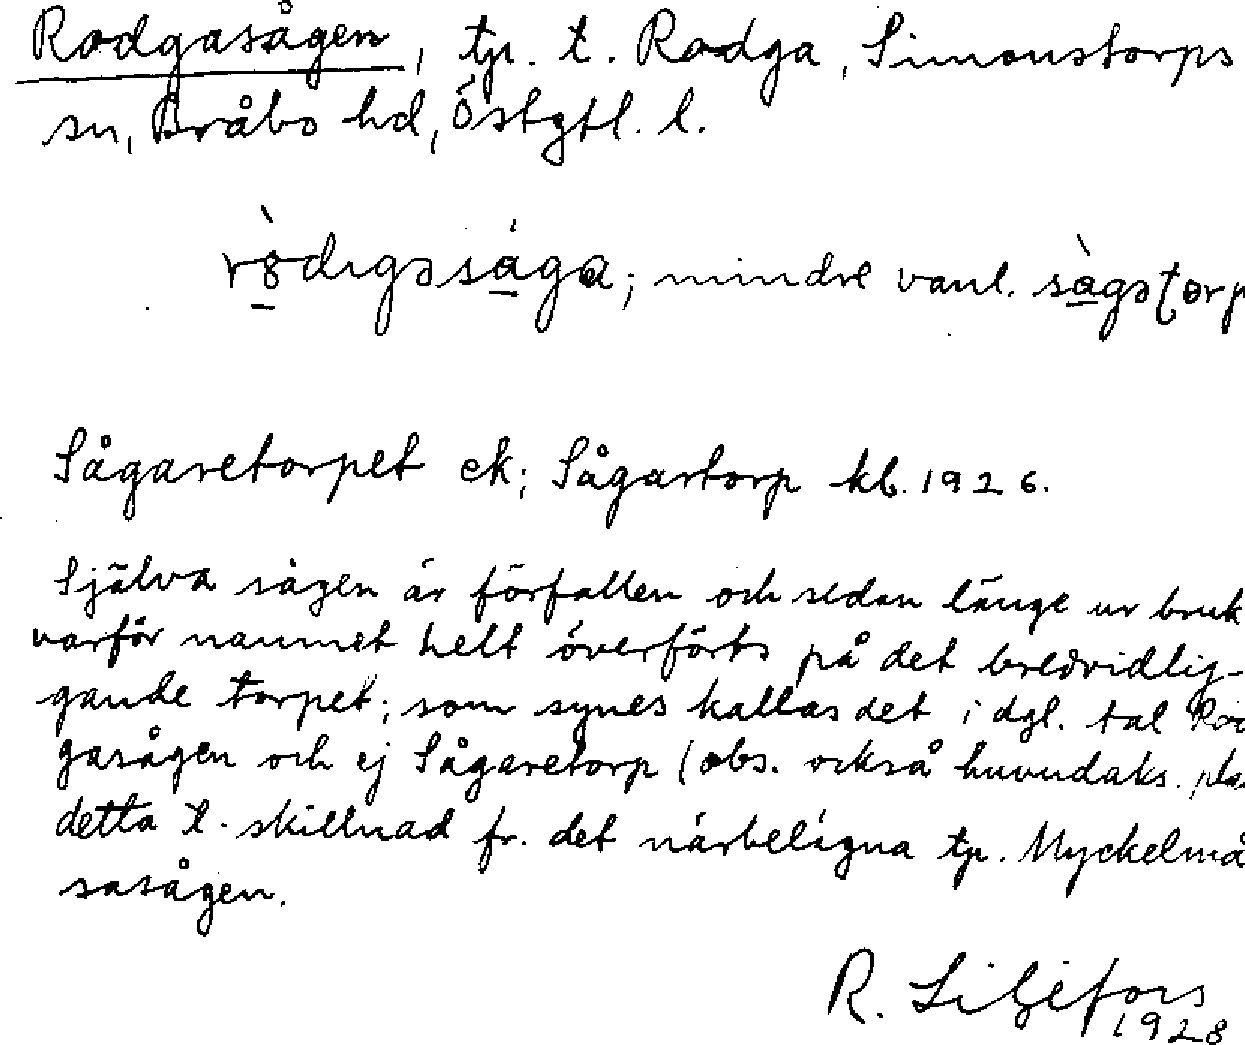 Rodgasågen, tp. t. Rodga, Simonstorps
sn, Bråbo hd, Östgtl. l.
mindre vanl.
Sågaretorpet ek; Sågartorp kb. 1926.
Själva sågen är förfallen och sedan länge ur bruk
varför namnet helt överförts på det bredvidlig-
gande torpet; som synes kallas det i dgl. tal
gasågen och ej Sågaretorp (obs. också huvudaks.
detta t. skillnad fr. det närbelägna tp. Myckelmå
sasågen.
R. Liljefors
1928